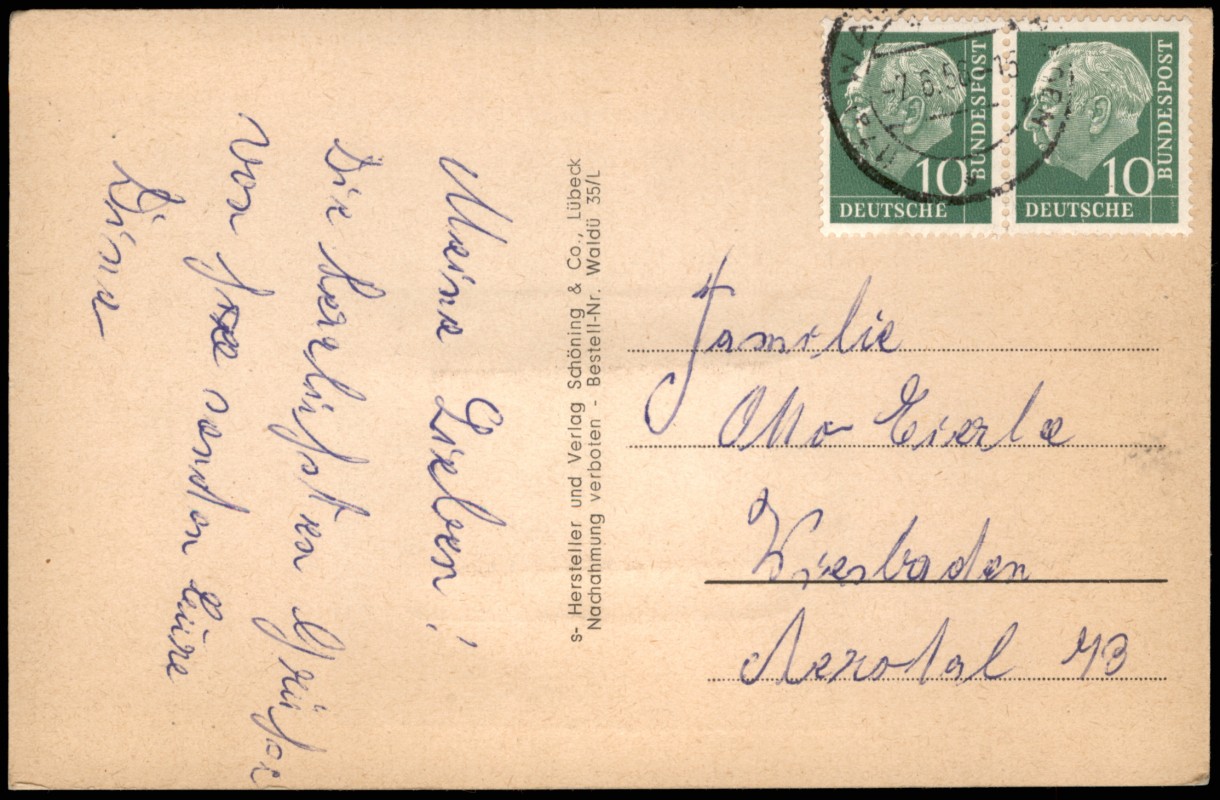 Meine Lieben!
Die herzlichsten Grüße
von
senden Eure
s- Hersteller und Verlag Schöning & Co., Lübeck
Nachahmung verboten - Bestell-Nr. Waldü 35/L
10
DEUTSCHE
BUNDESPOST
10
DEUTSCHE
BUNDESPOST
Familie
Otto Eierle
Wiesbaden
Nerotal